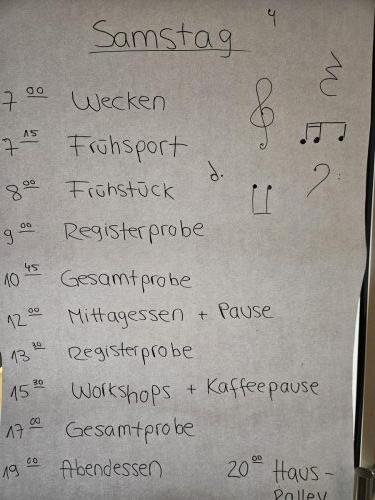 4
Samstag
7 00 Wecken
7 15 Frühsport
8 00 Frühstück
9 00 Registerprobe
10 45 Gesamtprobe
12 00 Mittagessen + Pause
13 30 Registerprobe
15 30 Workshops + Kaffeepause
17 00 Gesamtprobe
19 00 Abendessen
20 00 Haus-
Ralley